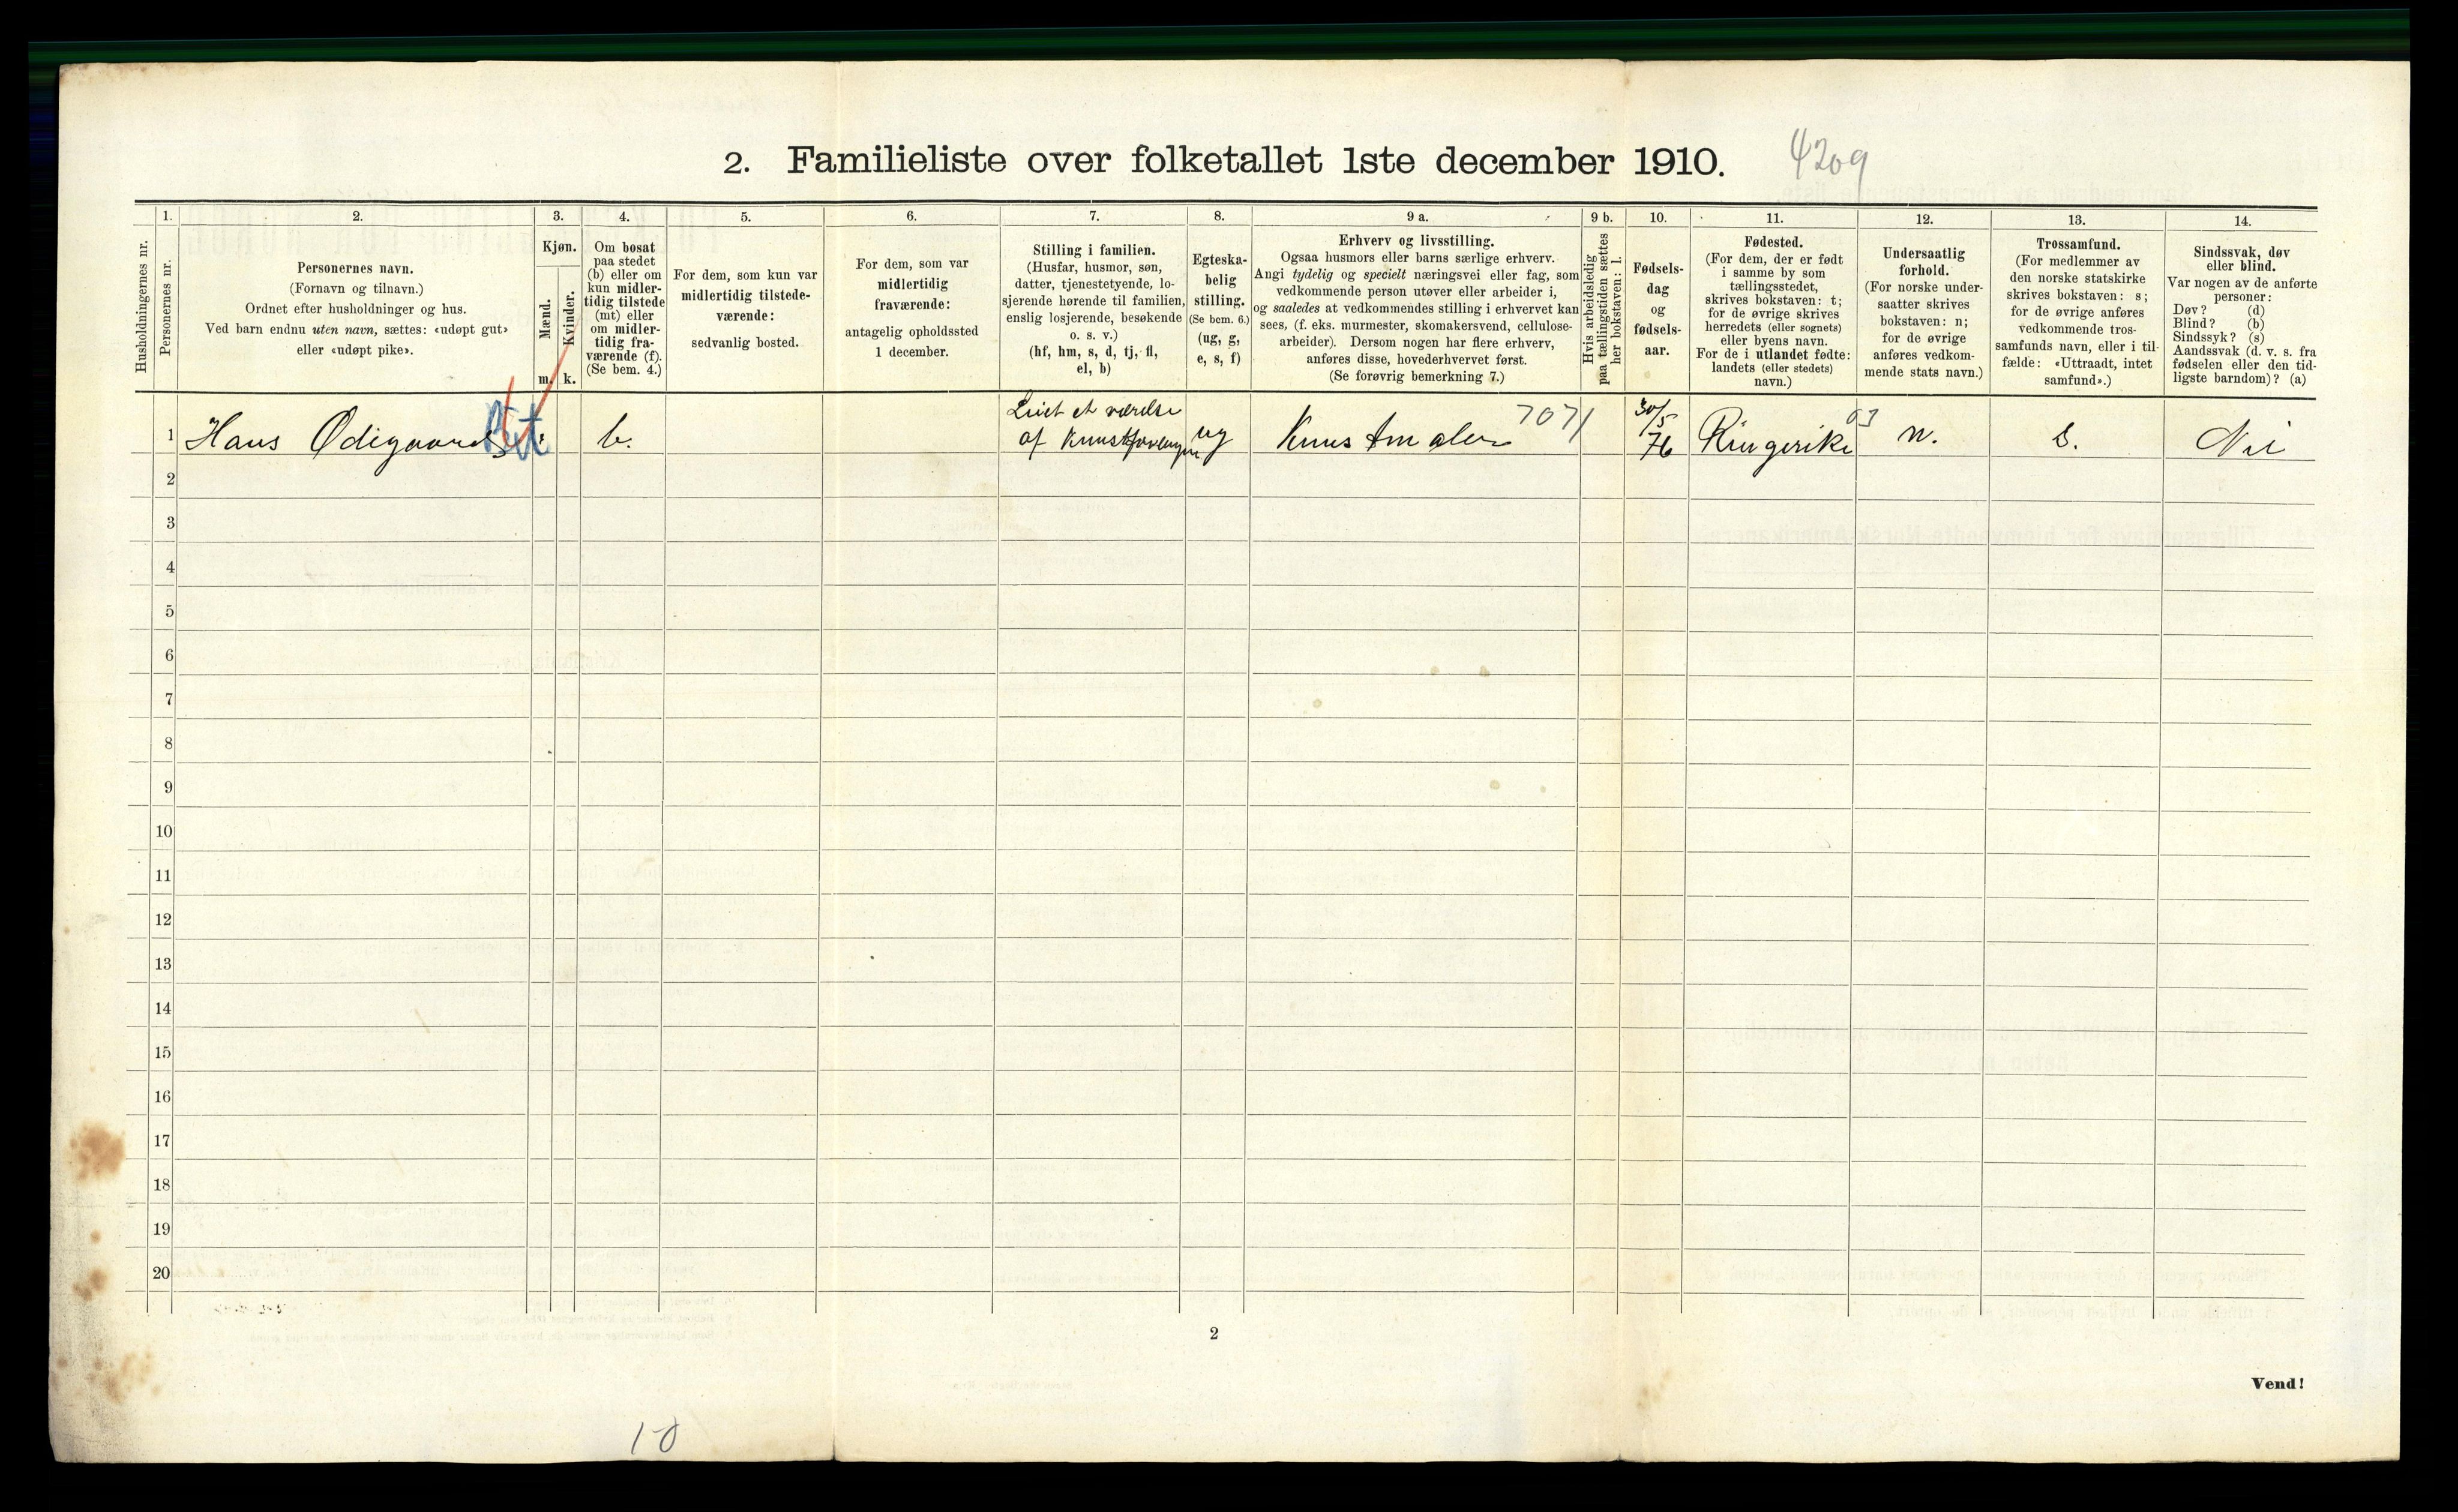 2. Familieliste over folketallet 1ste december 1910.
4209
Husholdningernes nr.
1.
Personernes nr.
2.
Personernes navn.
(Fornavn og tilnavn.)
Ordnet efter husholdninger og hus.
Ved barn endnu uten navn, sættes: «udøpt gut»
eller «udøpt pike».
3.
Kjøn.
Mænd.
m.
Kvinder.
k.
4.
Om bosat
paa stedet
(b) eller om
kun midler-
tidig tilstede
(mt) eller
om midler-
tidig fra-
værende (f).
(Se bem. 4.)
5.
For dem, som kun var
midlertidig tilstede-
værende:
sedvanlig bosted.
6.
For dem, som var
midlertidig
fraværende:
antagelig opholdssted
1 december.
7.
Stilling i familien.
(Husfar, husmor, søn,
datter, tjenestetyende, lo-
sjerende hørende til familien,
enslig losjerende, besøkende
o. s. v.)
(hf, hm, s, d, tj, fl,
el, b)
8.
Egteska-
belig
stilling.
(Se bem. 6.)
(ug, g,
e, s, f)
9 a.
Erhverv og livsstilling.
Ogsaa husmors eller barns særlige erhverv.
Angi tydelig og specielt næringsvei eller fag, som
vedkommende person utøver eller arbeider i,
og saaledes at vedkommendes stilling i erhvervet kan
sees, (f. eks. murmester, skomakersvend, cellulose-
arbeider). Dersom nogen har flere erhverv,
anføres disse, hovederhvervet først.
(Se forøvrig bemerkning 7.)
9 b.
Hvis arbeidsledig
paa tællingstiden sættes
her bokstaven: l.
10.
Fødsels-
dag
og
fødsels-
aar.
11.
Fødested.
(For dem, der er født
i samme by som
tællingsstedet,
skrives bokstaven: t;
for de øvrige skrives
herredets (eller sognets)
eller byens navn.
For de i utlandet fødte:
landets (eller stedets)
navn.)
12.
Undersaatlig
forhold.
(For norske under-
saatter skrives
bokstaven: n;
for de øvrige
anføres vedkom-
mende stats navn.)
13.
Trossamfund.
(For medlemmer av
den norske statskirke
skrives bokstaven: s;
for de øvrige anføres
vedkommende tros-
samfunds navn, eller i til-
fælde: «Uttraadt, intet
samfund».)
14.
Sindssvak, døv
eller blind.
Var nogen av de anførte
personer:
Døv? (d)
Blind? (b)
Sindssyk? (s)
Aandssvak (d. v. s. fra
fødselen eller den tid-
ligste barndom)? (a)
1 Hans Ødigaard b. Leiet et værelse
af Kunstforeningen ug Kunstmaler 7071 30/5
76 Ringerike 03 n. S. Nei
2
3
4
5
6
7
8
9
10
11
12
13
14
15
16
17
18
19
20
2
Vend!
10